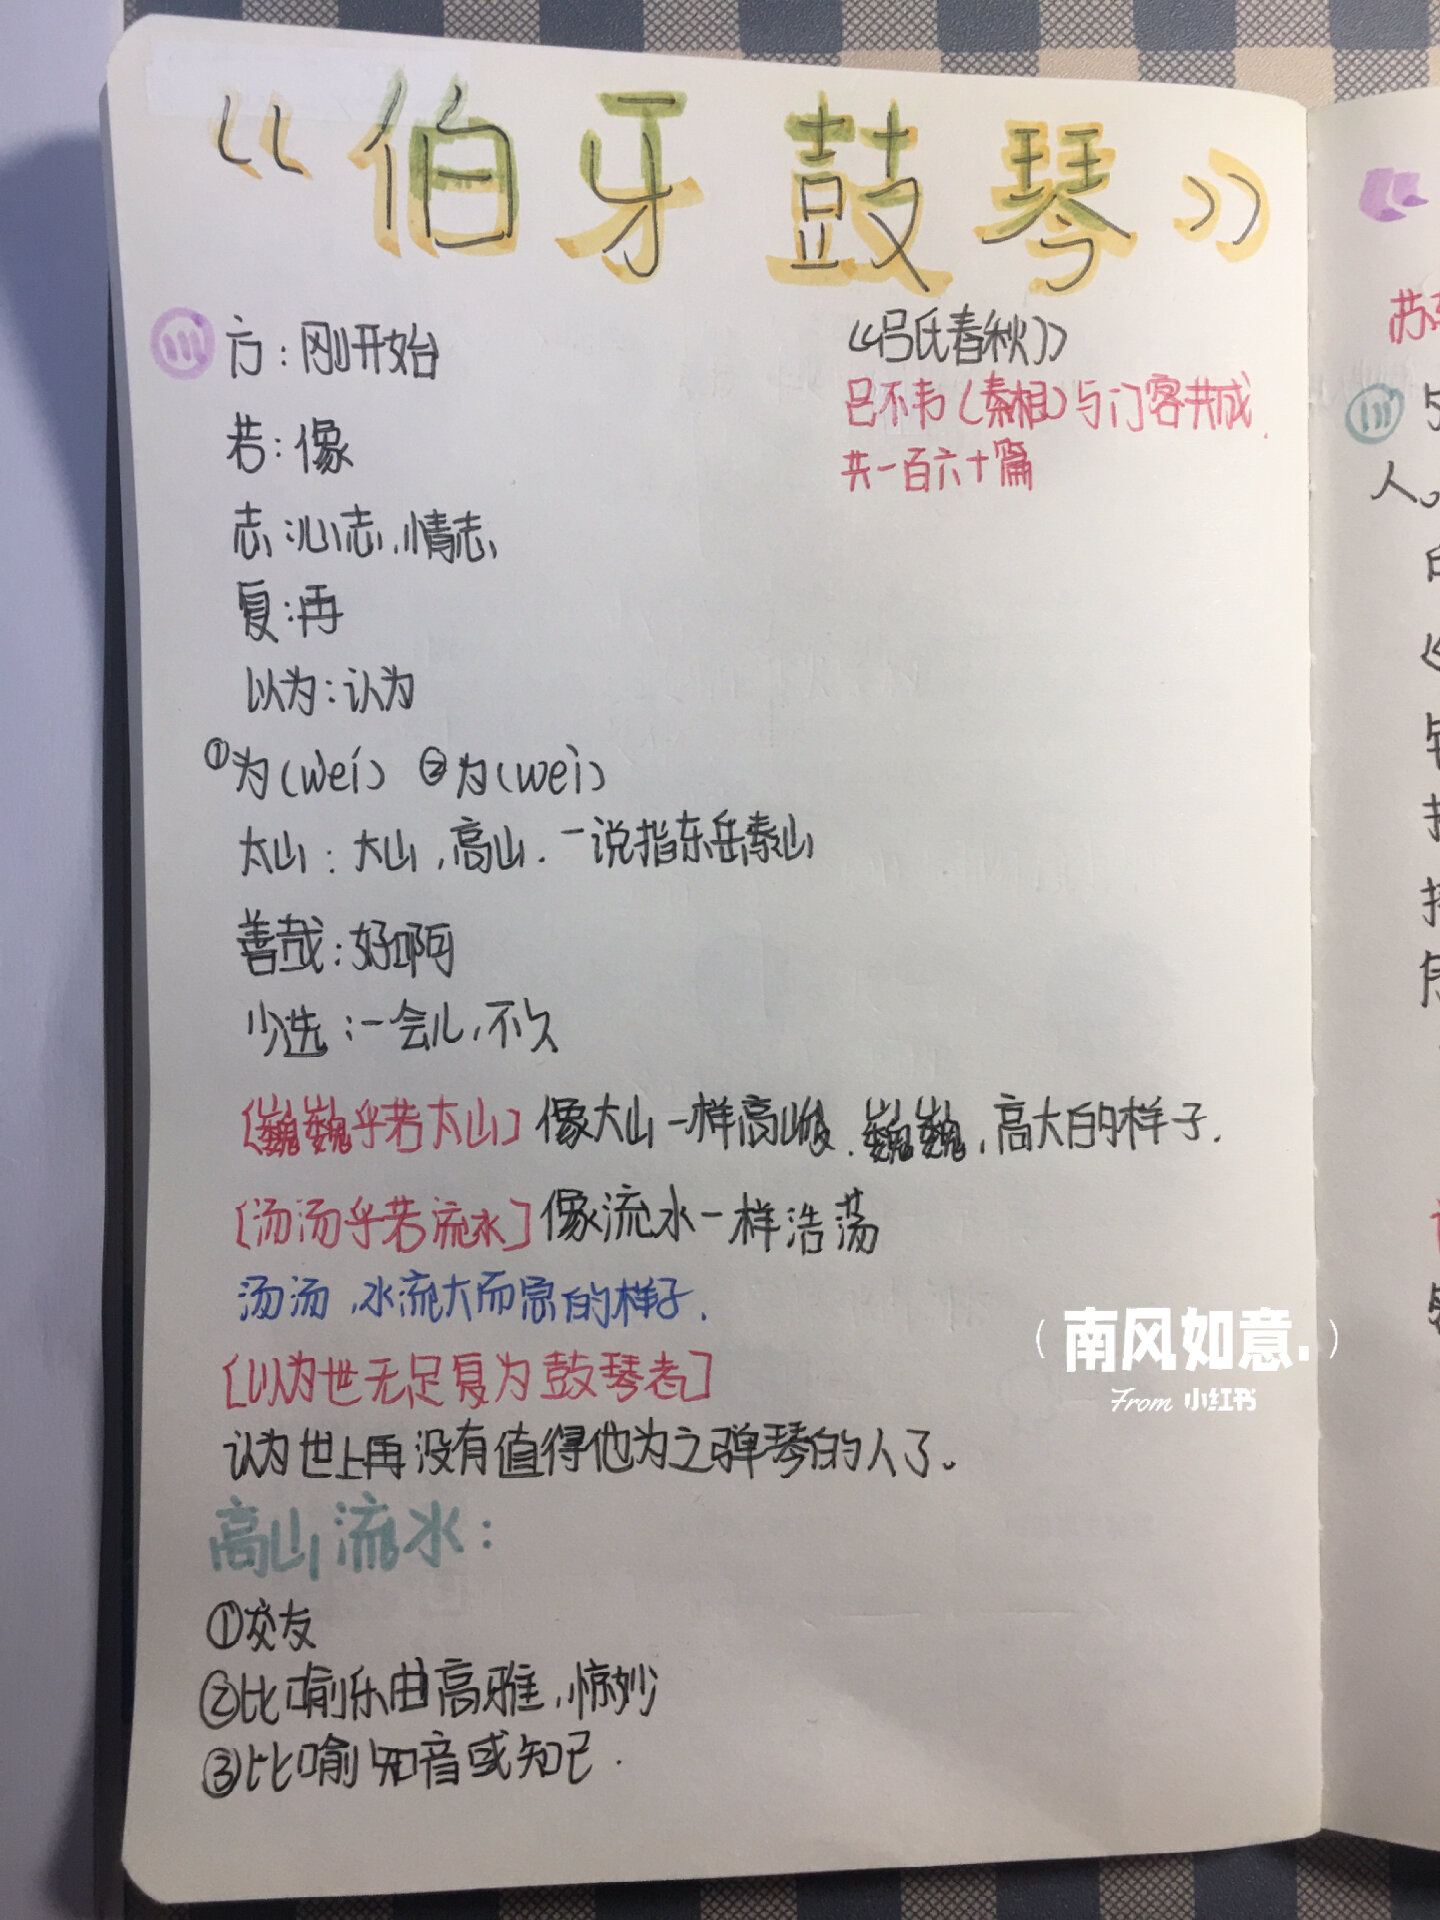 《伯牙鼓琴》
方：刚开始
《吕氏春秋》
吕不韦（秦相）与门客共成.
共一百六十篇
若：像
志：心志，情志
复：再
以为：认为
①为（wéi） ②为（wèi）
太山：大山，高山.一说指东岳泰山
善哉：好啊
少选：一会儿，不久
[巍巍乎若太山]像大山一样高峻.巍巍，高大的样子.
[汤汤乎若流水]像流水一样浩荡
汤汤，水流大而急的样子.
[以为世无足复为鼓琴者]
认为世上再没有值得他为之弹琴的人了。
高山流水：
①交友
②比喻乐曲高雅，惊妙
③比喻知音或知己.
（南风如意.）
From 小红书
人。